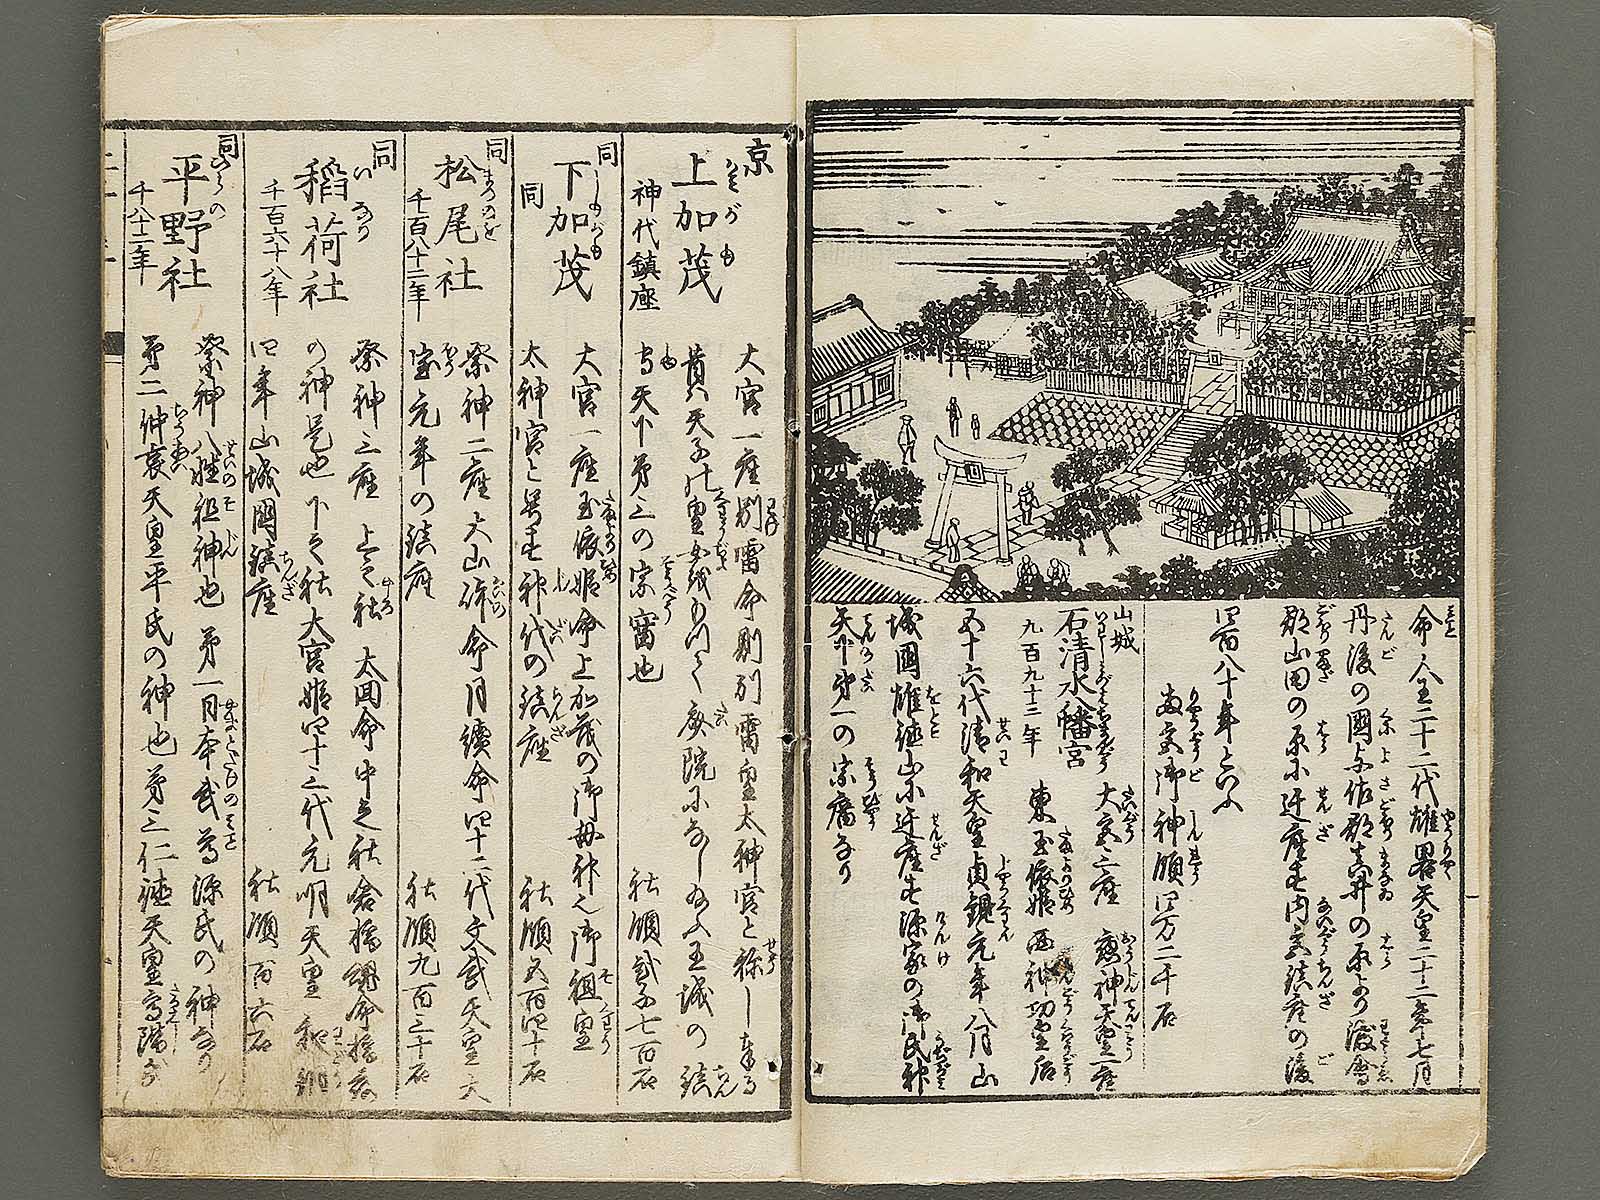 命人全二十二代雄畧天皇二十二年七月
丹後の國与佐郡真井の原より渡會
郡山田の原に迁座す内宮鎮座の後
四百八十年といふ
両宮御神領四万二千石
山城
石清水八幡宮
九百九十三年
大宮三座 應神天皇一座
東玉依姫 西神功皇后
五十六代清和天皇貞観元年八月山
城國雄徳山に迁座す源家の御氏神
天下第一の宗庿なり
京
上加茂
神代鎮座
大宮一座別雷命則別雷皇太神宮と称し奉る
貴天子の皇女
斎院になし給ふ王城の鎮
守天下第三の宗庿也
社領弐千七百石
同
下加茂
同
大宮一座玉依姫命上加茂の御母神也御祖皇
太神宮と号す神代の鎮座
社領五百四十石
同
松尾社
千百八十二年
祭神二座大山咋命月讀命四十二代文武天皇大
宝元年の鎮座
社領九百三十石
同
稲荷社
千百六十八年
祭神三座上之社太田命中之社倉稲魂命
の神是也下之社大宮姫四十三代元明天皇和銅
四年山城國鎮座
社領百六石
同
平野社
千八十二年
祭神八姓祖神也第一日本武尊源氏の神なり
第二仲哀天皇平氏の神也第三仁徳天皇高階